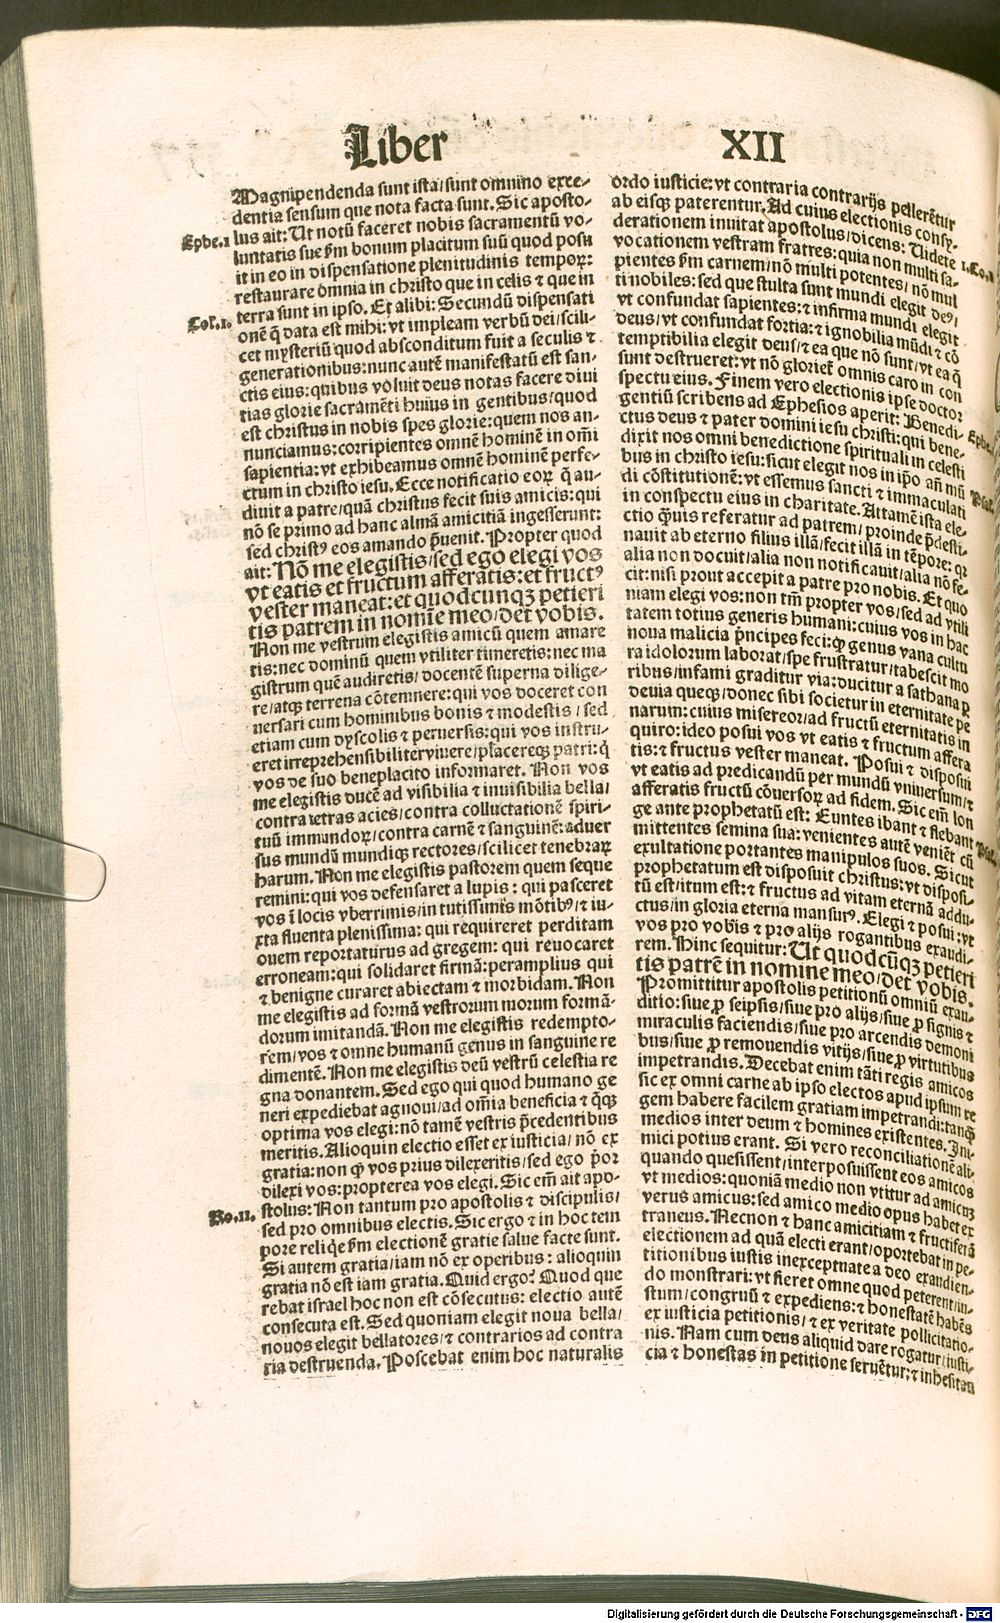 Liber
XII
Magnipendenda sunt ista/sunt omnino exce-
dentia sensum que nota facta sunt. Sic aposto-
Ephe.1
lus ait: Ut notū faceret nobis sacramentū vo-
luntatis sue ẜm bonum placitum suū quod posu
it in eo in dispensatione plenitudinis tempoꝝ:
restaurare omnia in christo que in celis ⁊ que in
terra sunt in ipso. Et alibi: Secundū dispensati
Col.1.
onē q̄ data est mihi: vt impleam verbū dei/scili-
cet mysteriū quod absconditum fuit a seculis ⁊
generationibus: nunc autē manifestatū est san-
ctis eius: quibus voluit deus notas facere diui
tias glorie sacramēti huius in gentibus/quod
est christus in nobis spes glorie: quem nos an-
nunciamus: corripientes omnē hominē in om̄i
sapientia: vt exhibeamus omnē hominē perfe-
ctum in christo iesu. Ecce notificatio eoꝝ q̄ au-
diuit a patre/quā christus fecit suis amicis: qui
nō se primo ad hanc almā amicitiā ingesserunt:
sed christꝰ eos amando p̄uenit. Propter quod
ait: Nō me elegistis/sed ego elegi vos
vt eatis et fructum afferatis: et fructꝰ
vester maneat: et quodcunqꝫ petieri
tis patrem in nomīe meo/det vobis.
Non me vestrum elegistis amicū quem amare
tis: nec dominū quem vtiliter timeretis: nec ma
gistrum quē audiretis/docentē superna dilige-
re/atqꝫ terrena cōtemnere: qui vos doceret con
uersari cum hominibus bonis ⁊ modestis/sed
etiam cum dyscolis ⁊ peruersis: qui vos instru-
eret irreprehensibiliter viuere/placereqꝫ patri: q̇
vos de suo beneplacito informaret. Non vos
me elegistis ducē ad visibilia ⁊ inuisibilia bella/
contra tetras acies/contra colluctationē spiri-
tuū immundoꝝ/contra carnē ⁊ sanguinē: aduer
sus mundū mundiqꝫ rectores/scilicet tenebraꝝ
harum. Non me elegistis pastorem quem seque
remini: qui vos defensaret a lupis: qui pasceret
vos ī locis vberrimis/in tutissimis mōtibꝰ/⁊ iu-
xta fluenta plenissima: qui requireret perditam
ouem reportaturus ad gregem: qui reuocaret
erroneam: qui solidaret firmā: peramplius qui
⁊ benigne curaret abiectam ⁊ morbidam. Non
me elegistis ad formā vestrorum morum formā-
dorum imitandā. Non me elegistis redempto-
rem/vos ⁊ omne humanū genus in sanguine re
dimentē. Non me elegistis deū vestrū celestia re
gna donantem. Sed ego qui quod humano ge
neri expediebat agnoui/ad om̄ia beneficia ⁊ q̄qꝫ
optima vos elegi: nō tamē vestris p̄cedentibus
meritis. Alioquin electio esset ex iusticia/nō ex
gratia: non ꝙ vos prius dilexeritis/sed ego p̄or
dilexi vos: propterea vos elegi. Sic em̄ ait apo-
Ro.11.
stolus: Non tantum pro apostolis ⁊ discipulis/
sed pro omnibus electis. Sic ergo ⁊ in hoc tem
pore reliq̄e ẜm electionē gratie salue facte sunt.
Si autem gratia/iam nō ex operibus: alioquin
gratia nō est iam gratia. Quid ergo? Quod que
rebat israel hoc non est cōsecutus: electio autē
consecuta est. Sed quoniam elegit noua bella/
nouos elegit bellatores/⁊ contrarios ad contra
ria destruenda. Poscebat enim hoc naturalis
ordo iusticie: vt contraria contrarijs pellerētur
ab eisqꝫ paterentur. Ad cuius electionis consy-
derationem inuitat apostolus/dicens: Uidete
1.Co.1
vocationem vestram fratres: quia non multi sa-
pientes ẜm carnem/nō multi potentes/nō mul
ti nobiles: sed que stulta sunt mundi elegit deꝰ/
vt confundat sapientes: ⁊ infirma mundi elegit
deus/vt confundat fortia: ⁊ ignobilia mūdi ⁊ cō
temptibilia elegit deus/⁊ ea que nō sunt/vt ea q̄
sunt destrueret: vt nō glorieť omnis caro in con
spectu eius. Finem vero electionis ipse doctor
gentiū scribens ad Ephesios aperit: Benedi-
Ephe.
ctus deus ⁊ pater domini iesu christi: qui bene-
dixit nos omni benedictione spirituali in celesti
bus in christo iesu: sicut elegit nos in ip̄o añ mū
Psal.
di cōstitutionē: vt essemus sancti ⁊ immaculati
in conspectu eius in charitate. Attamē ista ele-
ctio q̄uis referatur ad patrem/proinde p̄desti-
nauit ab eterno filius illā/fecit illā in tēpore: qꝛ
alia non docuit/alia non notificauit/alia nō fe-
cit: nisi prout accepit a patre pro nobis. Et quo
niam elegi vos: non tm̄ propter vos/sed ad vtili
tatem totius generis humani: cuius vos in hac
noua malicia p̄ncipes feci: ꝙ genus vana cultu
ra idolorum laborat/spe frustratur/tabescit mo
ribus/infami graditur via: ducitur a sathana ꝑ
deuia queqꝫ/donec sibi societur in eternitate pe
narum: cuius misereor/ad fructū eternitatis in
quiro: ideo posui vos vt eatis ⁊ fructum affera
tis: ⁊ fructus vester maneat. Posui ⁊ disposui
vt eatis ad predicandū per mundū vniuersum/⁊
afferatis fructū cōuersoꝝ ad fidem. Sic em̄ lon
ge ante prophetatū est: Euntes ibant ⁊ flebant
Psal.
mittentes semina sua: venientes autē veniēt cū
exultatione portantes manipulos suos. Sicut
prophetatum est disposuit christus: vt disposi-
tū est/itum est: ⁊ fructus ad vitam eternā addu-
ctus/in gloria eterna mansurꝰ. Elegi ⁊ posui: vt
vos pro vobis ⁊ pro alijs rogantibus exaudi-
rem. Hinc sequitur: Ut quodcūqꝫ petieri
tis patrē in nomine meo/det vobis.
Promittitur apostolis petitionū omniū exau-
ditio: siue ꝓ seipsis/siue pro alijs/siue ꝓ signis ⁊
miraculis faciendis/siue pro arcendis demoni
bus/siue ꝓ remouendis vitijs/siue ꝓ virtutibus
impetrandis. Decebat enim tāti regis amicos
sic ex omni carne ab ipso electos apud ipsum re
gem habere facilem gratiam impetrandi: tanq̄
medios inter deum ⁊ homines existentes. Ini-
mici potius erant. Si vero reconciliationē ali-
quando quesissent/interposuissent eos amicos
vt medios: quoniā medio non vtitur ad amicum
verus amicus: sed amico medio opus habet ex
traneus. Necnon ⁊ hanc amicitiam ⁊ fructiferā
electionem ad quā electi erant/oportebat in pe-
titionibus iustis inexceptuate a deo exaudien-
do monstrari: vt fieret omne quod peterent/iu-
stum/congruū ⁊ expediens: ⁊ honestatē habēs
ex iusticia petitionis/⁊ ex veritate pollicitatio-
nis. Nam cum deus aliquid dare rogatur/iusti-
cia ⁊ honestas in petitione seruētur: ⁊ inhesitan
Digitalisierung gefördert durch die Deutsche Forschungsgemeinschaft - DFG